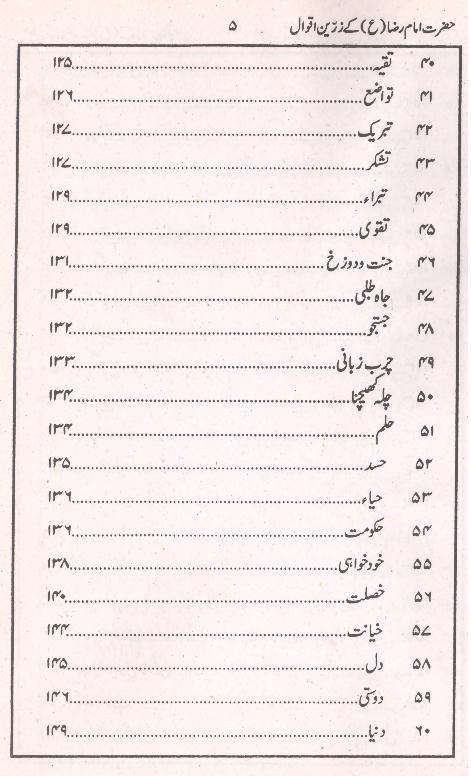 حضرت امام رضا (ع) کے زرّین اقوال ۵
۴۰ تقیہ..........۱۲۵
۴۱ تواضع..........۱۲۶
۴۲ تبریک..........۱۲۷
۴۳ تشکر..........۱۲۷
۴۴ تبراء..........۱۲۹
۴۵ تقوی..........۱۲۹
۴۶ جنت و دوزخ..........۱۳۱
۴۷ جاہ طلبی..........۱۳۲
۴۸ جستجو..........۱۳۲
۴۹ چرب زبانی..........۱۳۳
۵۰ چلہ کھینچنا..........۱۳۴
۵۱ حلم..........۱۳۴
۵۲ حسد..........۱۳۵
۵۳ حیاء..........۱۳۶
۵۴ حکومت..........۱۳۶
۵۵ خودخواہی..........۱۳۸
۵۶ خصلت..........۱۴۰
۵۷ خیانت..........۱۴۴
۵۸ دل..........۱۴۵
۵۹ دوستی..........۱۴۶
۶۰ دنیا..........۱۴۹